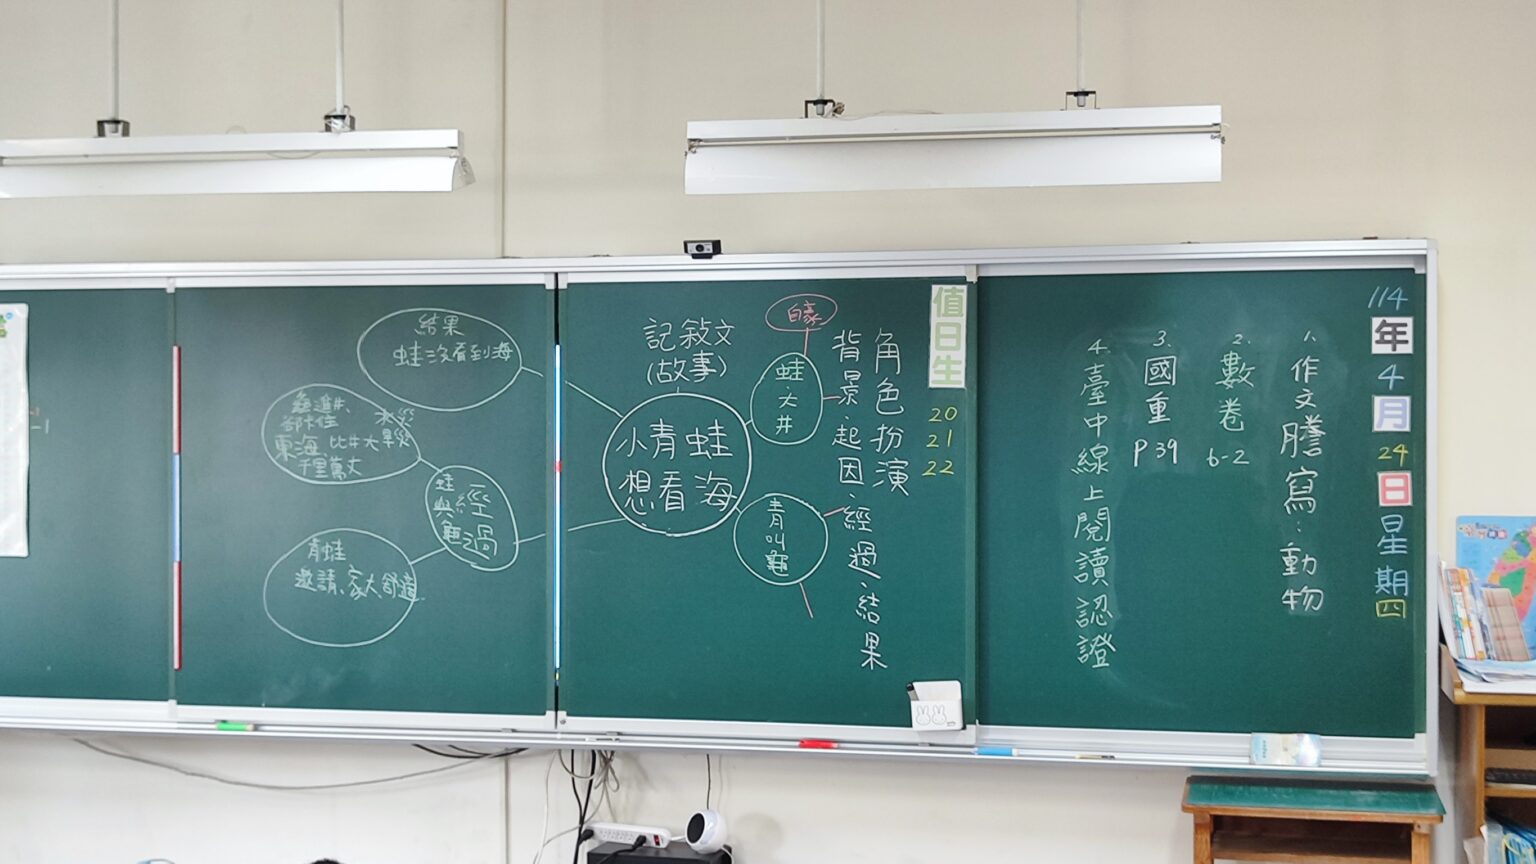 114
年
4
月
24
日
星
期
四
1. 作文謄寫:動物
2. 數卷 6-2
3. 國重 P39
4. 臺中線上閱讀認證
值日生
20
21
22
角色扮演
背景、起因、經過、結果
記敘文
(故事)
小青蛙
想看海
自豪
蛙、大井
青叫龜
結果
蛙沒看到海
經過
蛙與龜
東海
千里萬丈
比井大
水災
旱災
青蛙
邀請、家大舒適